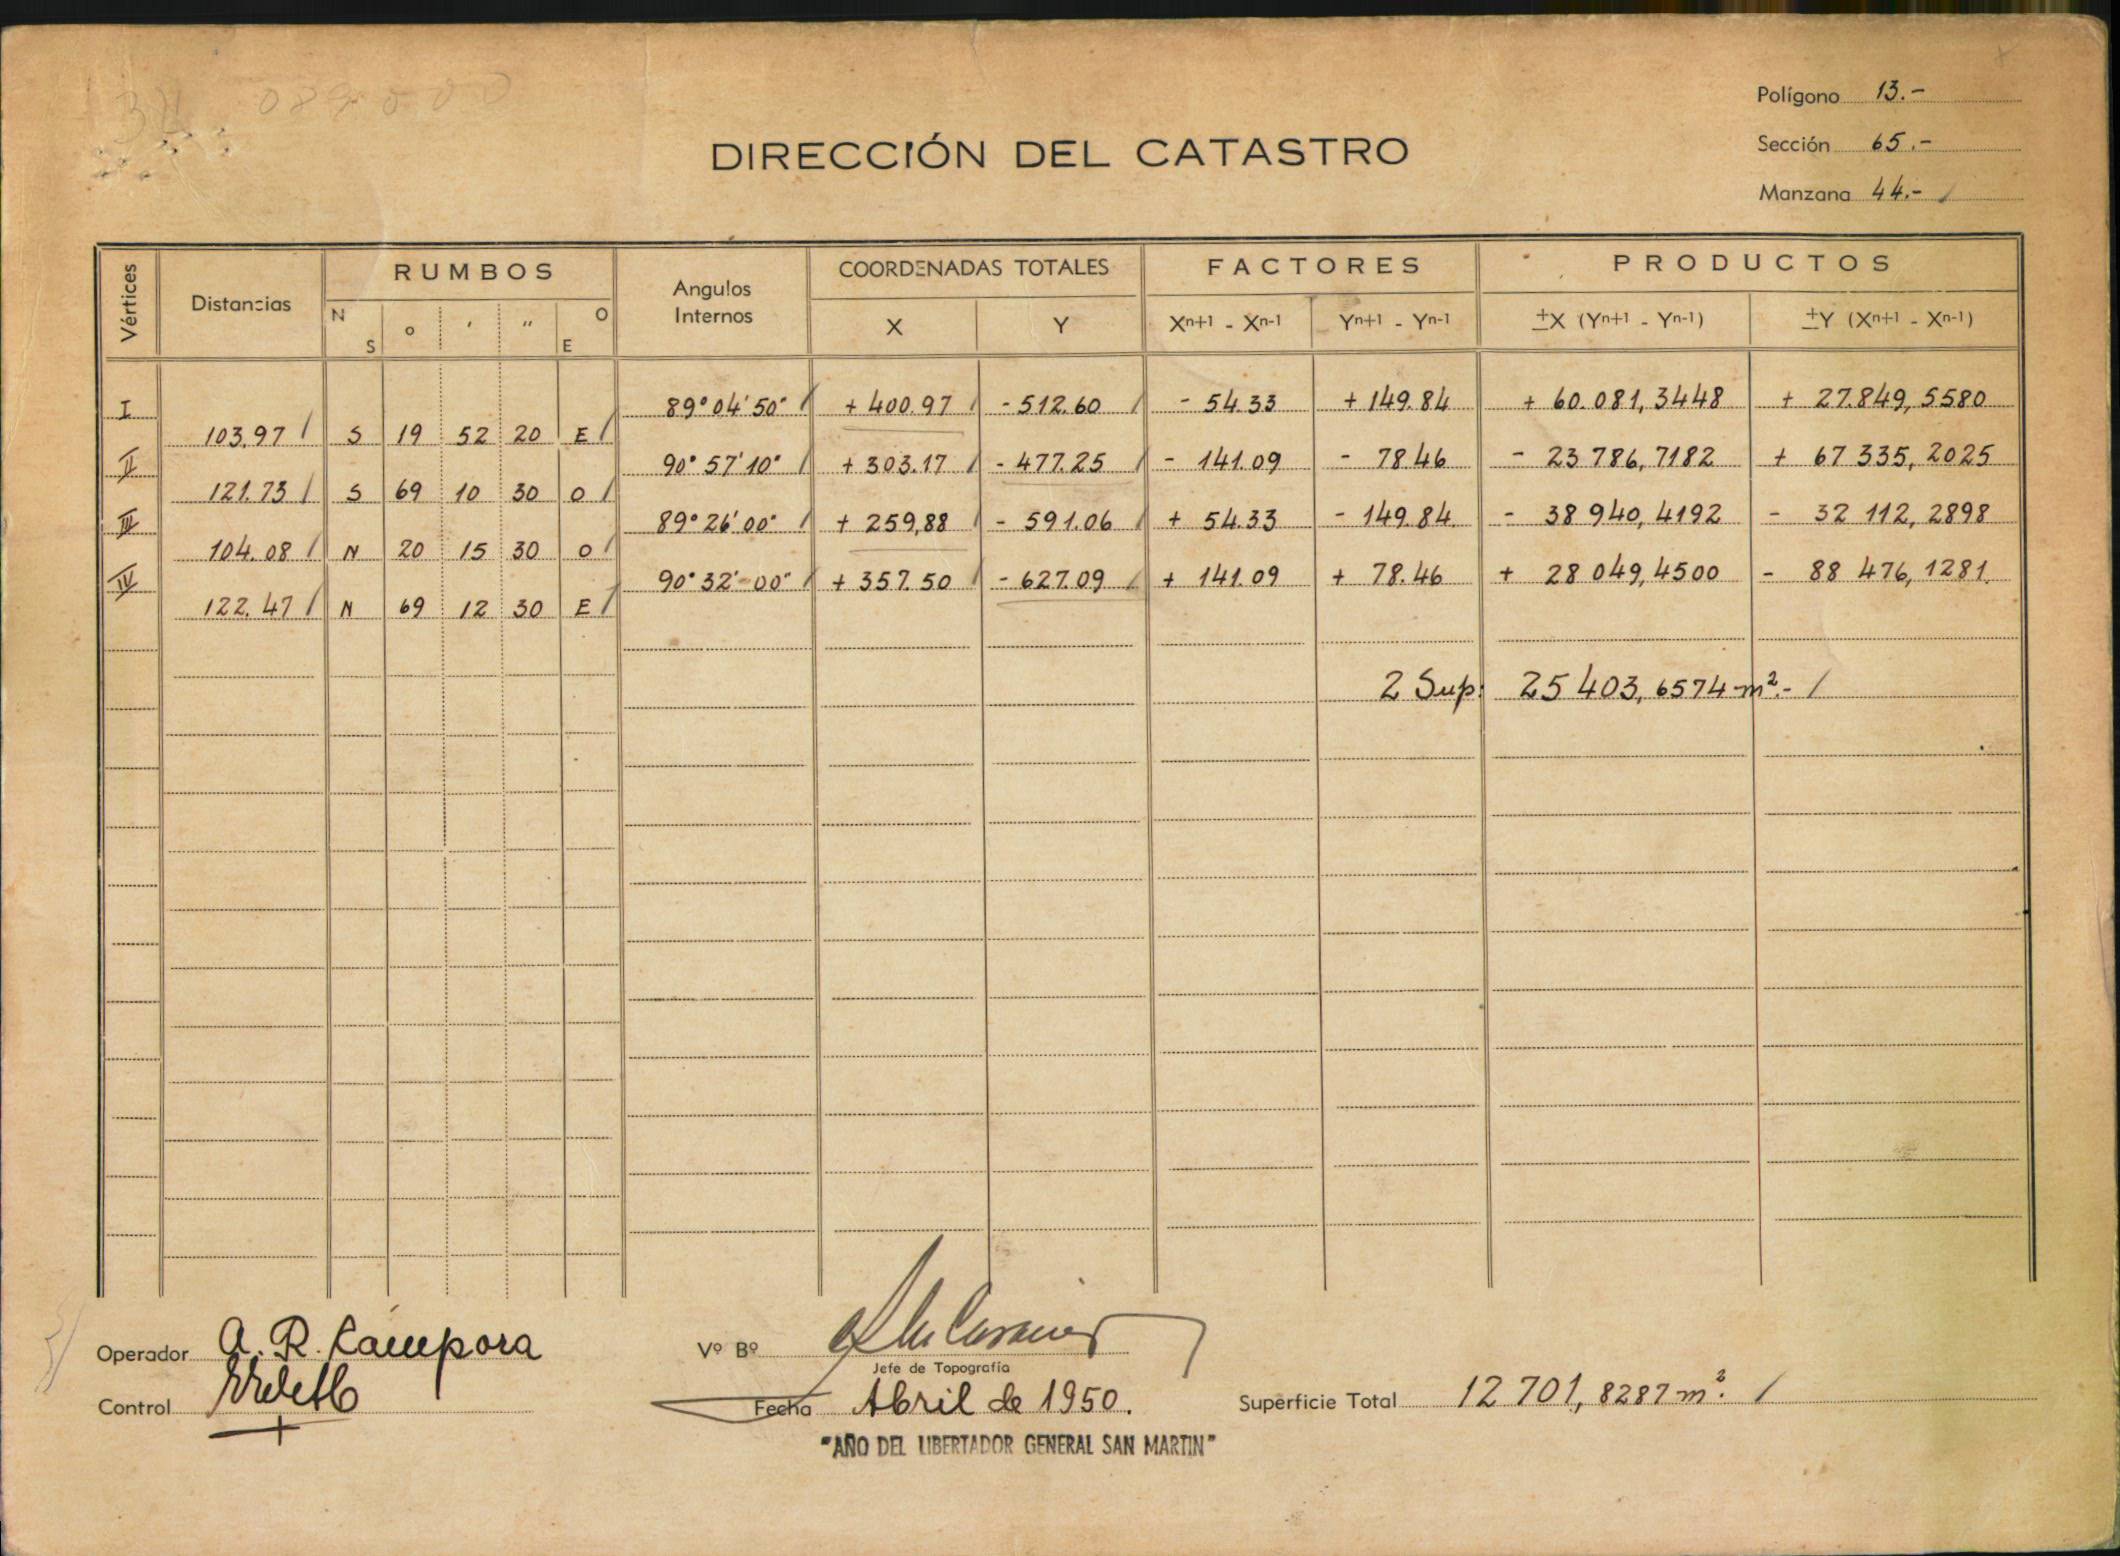 Polígono 13.-
DIRECCIÓN DEL CATASTRO
Sección 65.-
Manzana 44.- /
Vértices Distancias RUMBOS Angulos Internos COORDENADAS TOTALES FACTORES PRODUCTOS
N S ° ' " O E X Y Xn+1 - Xn-1 Yn+1 - Yn-1 ±X (Yn+1 - Yn-1) ±Y (Xn+1 - Xn-1)
I 89° 04' 50" / + 400.97 / - 512.60 / - 54.33 + 149.84 + 60.081,3448 + 27.849,5580
103.97 / S 19 52 20 E /
II 90° 57' 10" / + 303.17 / - 477.25 / - 141.09 - 78.46 - 23 786,7182 + 67 335,2025
121.73 / S 69 10 30 O /
III 89° 26' 00" / + 259,88 / - 591.06 / + 54.33 - 149.84 - 38 940,4192 - 32 112,2898
104.08 / N 20 15 30 O /
IV 90° 32' 00" / + 357.50 / - 627.09 / + 141.09 + 78.46 + 28 049,4500 - 88 476,1281
122.47 / N 69 12 30 E /
2 Sup: 25 403,6574 m².- /
Operador A. R. Cámpora
Vº Bº
Jefe de Topografía
Control
Fecha Abril de 1950.
Superficie Total 12 701,8287 m². /
"AÑO DEL LIBERTADOR GENERAL SAN MARTIN"